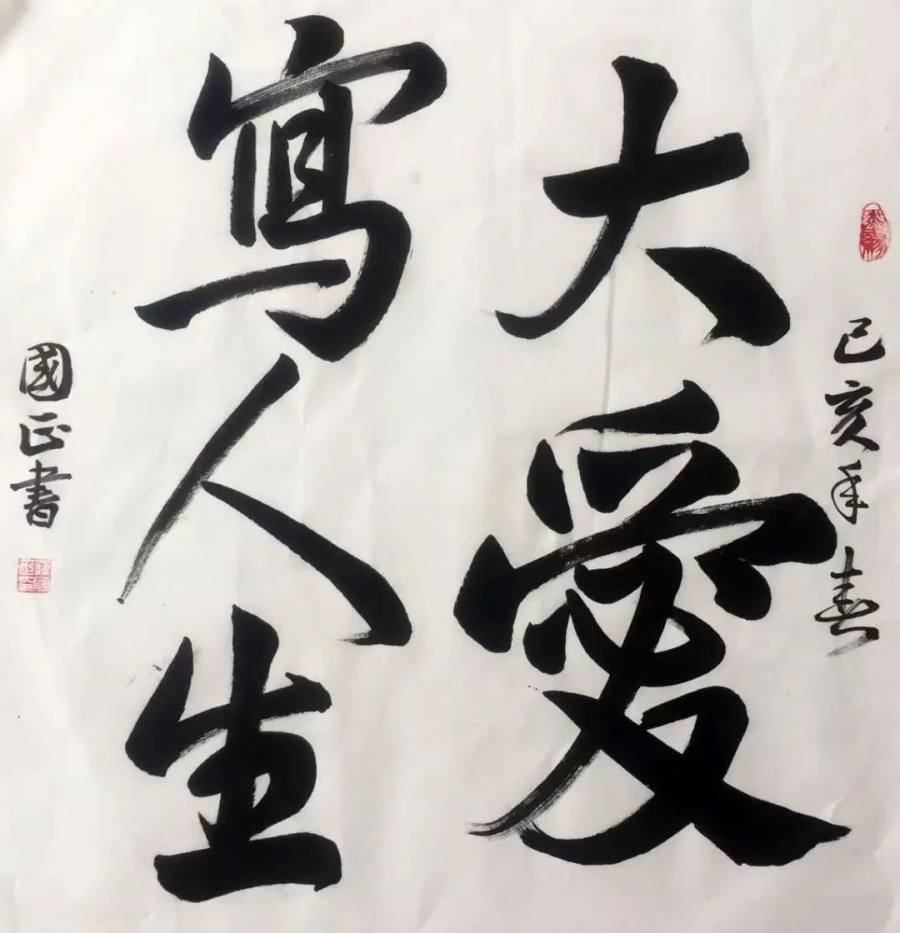 己亥年春
大愛
寫人生
國正書